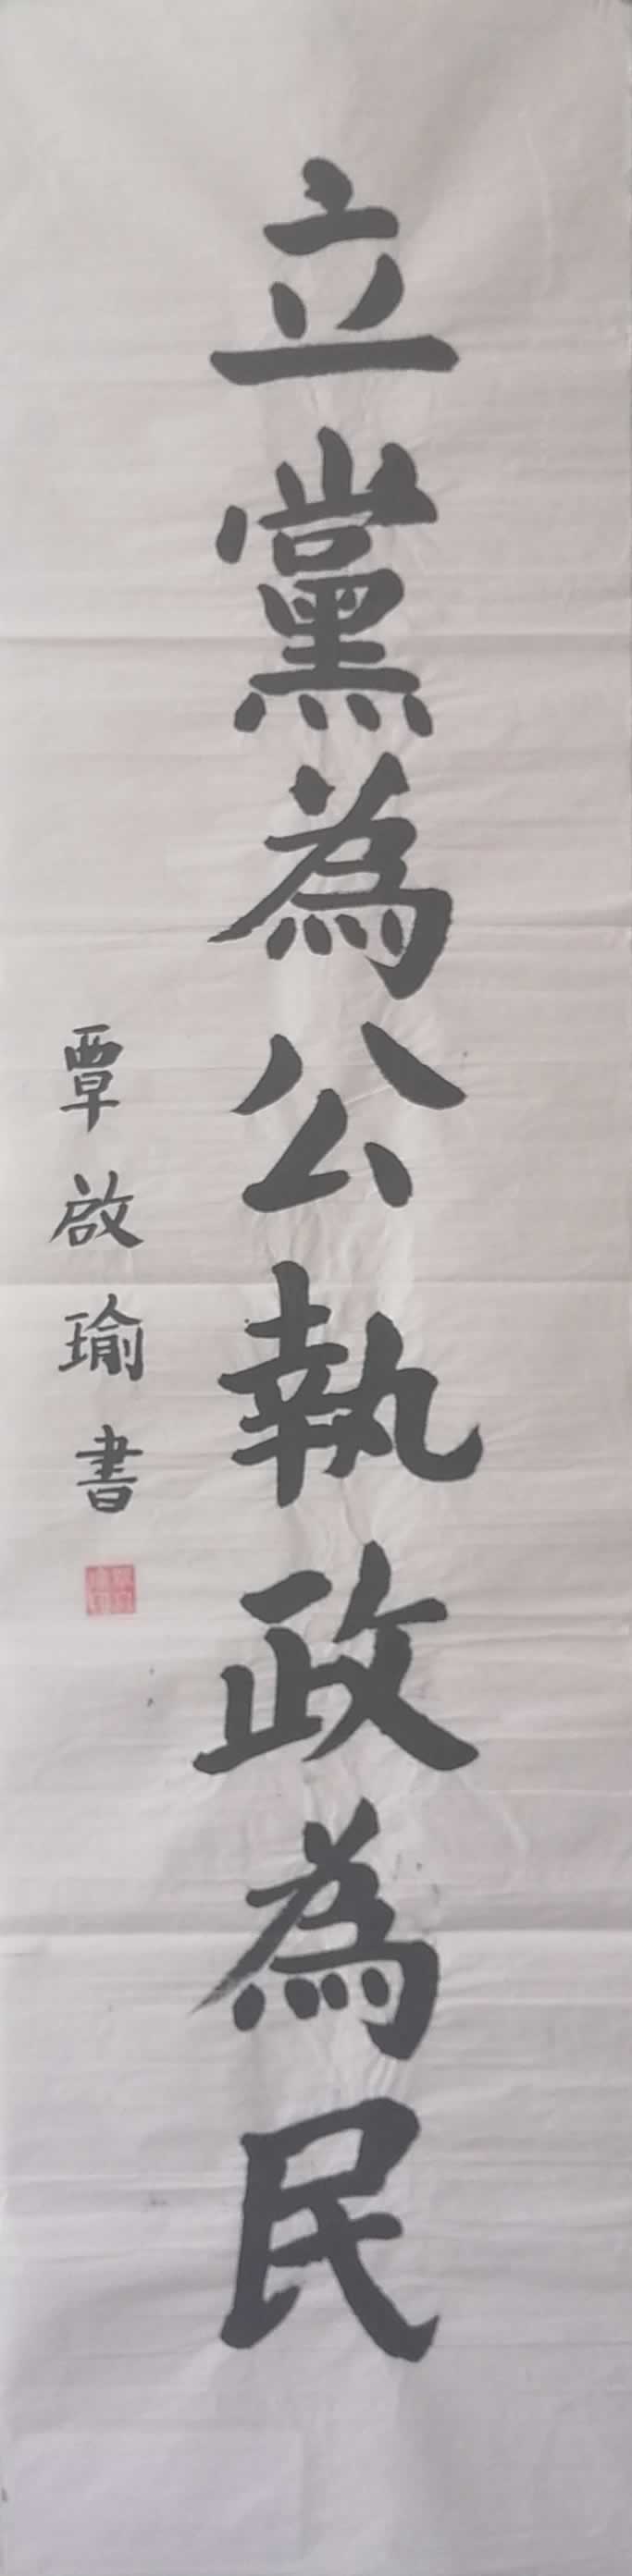 立黨為公執政為民
覃啟瑜書